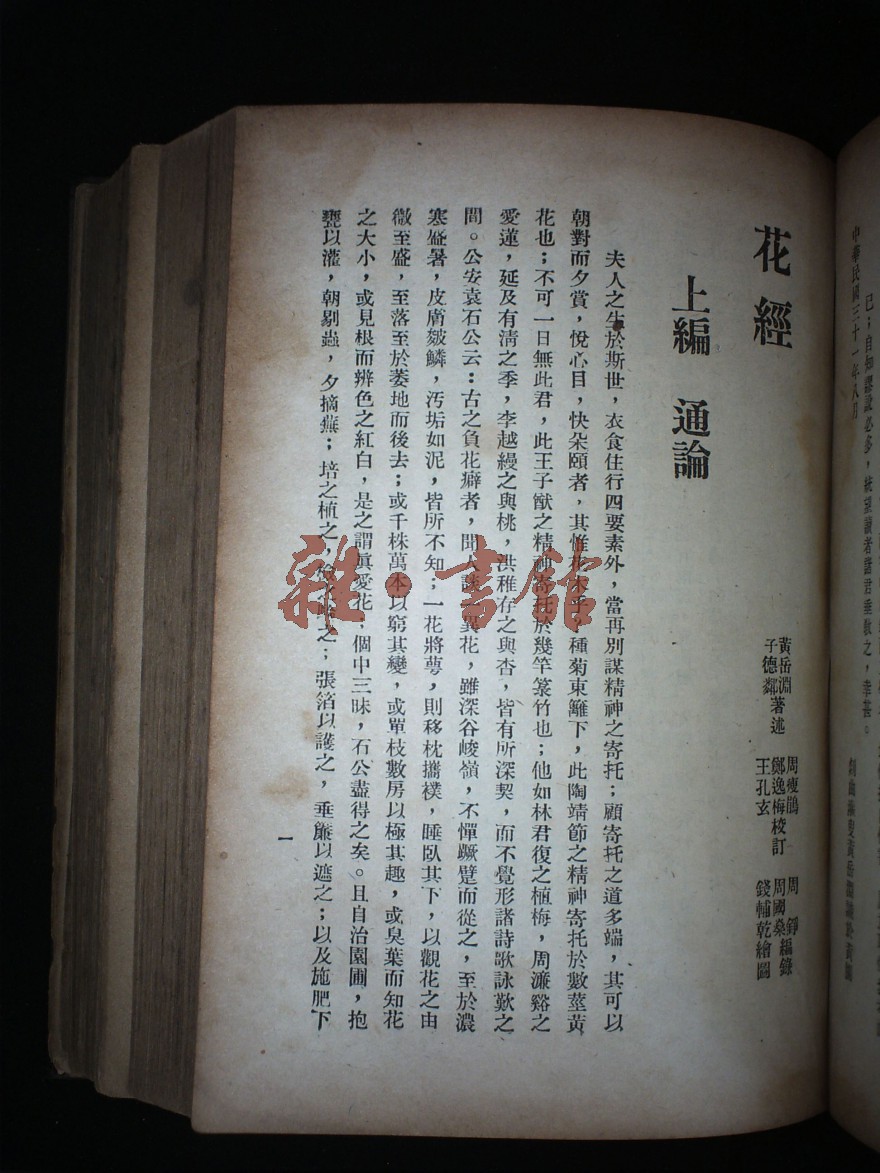 已；自知謬誤必多，統望識者諸君垂教之，幸甚。
中華民國三十一年八月
花經
上編 通論
黃岳淵
子德鄰
著述
周瘦鵑
鄭逸梅校訂
王孔玄
周錚
周國燊編錄
錢輔乾繪圖
夫人之生於斯世，衣食住行四要素外，當再別謀精神之寄托；顧寄托之道多端，其可以
朝對而夕賞，悅心目，快朵頤者，其惟花木乎？種菊東籬下，此陶靖節之精神寄托於數莖黃
花也；不可一日無此君，此王子猷之精神寄托於幾竿篆竹也；他如林君復之植梅，周濂谿之
愛蓮，延及有淸之季，李越縵之與桃，洪稚存之與杏，皆有所深契，而不覺形諸詩歌詠歎之
間。公安袁石公云：古之負花癖者，聞人談一異花，雖深谷峻嶺，不憚蹶躄而從之，至於濃
寒盛暑，皮膚皴鱗，汚垢如泥，皆所不知；一花將萼，則移枕攜襆，睡臥其下，以觀花之由
微至盛，至落至於萎地而後去；或千株萬本以窮其變，或單枝數房以極其趣，或臭葉而知花
之大小，或見根而辨色之紅白，是之謂眞愛花，個中三昧，石公盡得之矣。且自治園圃，抱
甕以灌，朝剔蟲，夕摘蕪；培之植之，之；張箔以護之，垂簾以遮之；以及施肥下
一
雜·書館